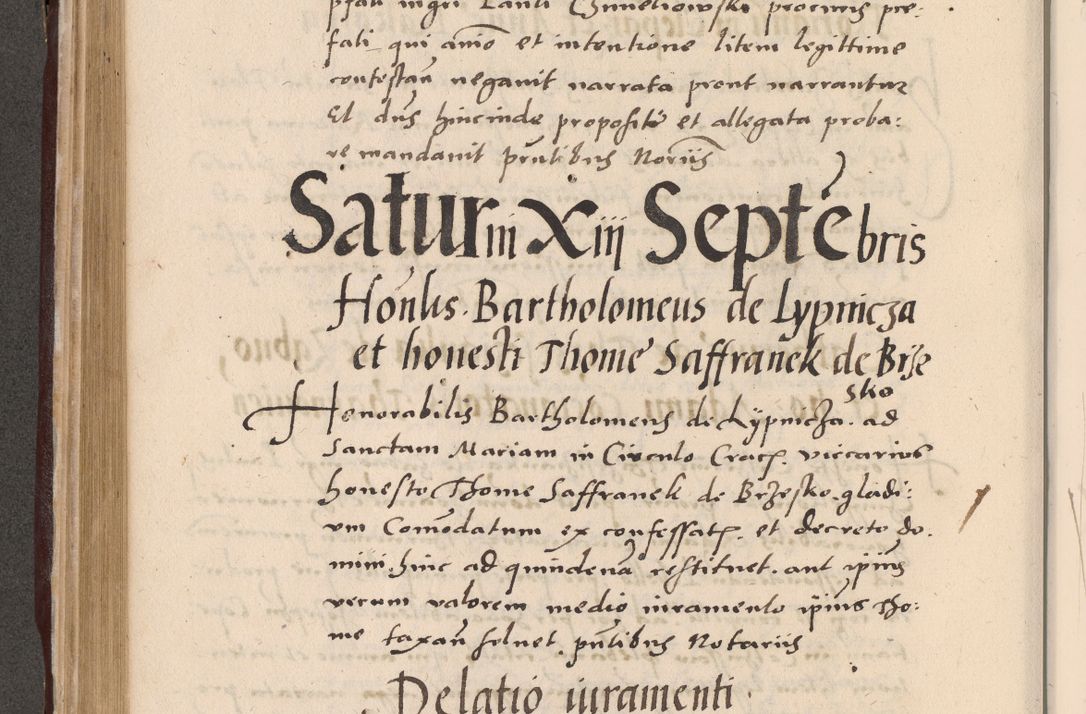 pfati mgri Pauli Chmieliowski procuris pre:
fati qui añio et intentione litem legittime
contestañ negavit narrata prout narrantur
Et dñs hincinde proposite et allegata proba:
re mandavit pñtibus Noriis
Saturni Xiii Septēbris
Honlis. Bartholomeus de Lypnicza
et honesti Thome Saffranek de Brze
sko
Honorabilis Bartholomeus de Lypnicza. ad
Sanctam Mariam in Circulo Crac. viccarius
honesto Thome Saffranek de Brzesko. gladi:
um Comōdatum ex confessat. et decreto do.
mini. hinc ad quindenā restituet. aut ipius
verum valorem medio iuramento ipius Tho:
me taxañ solvet. pñtibus Notariis
Delatio iuramenti.